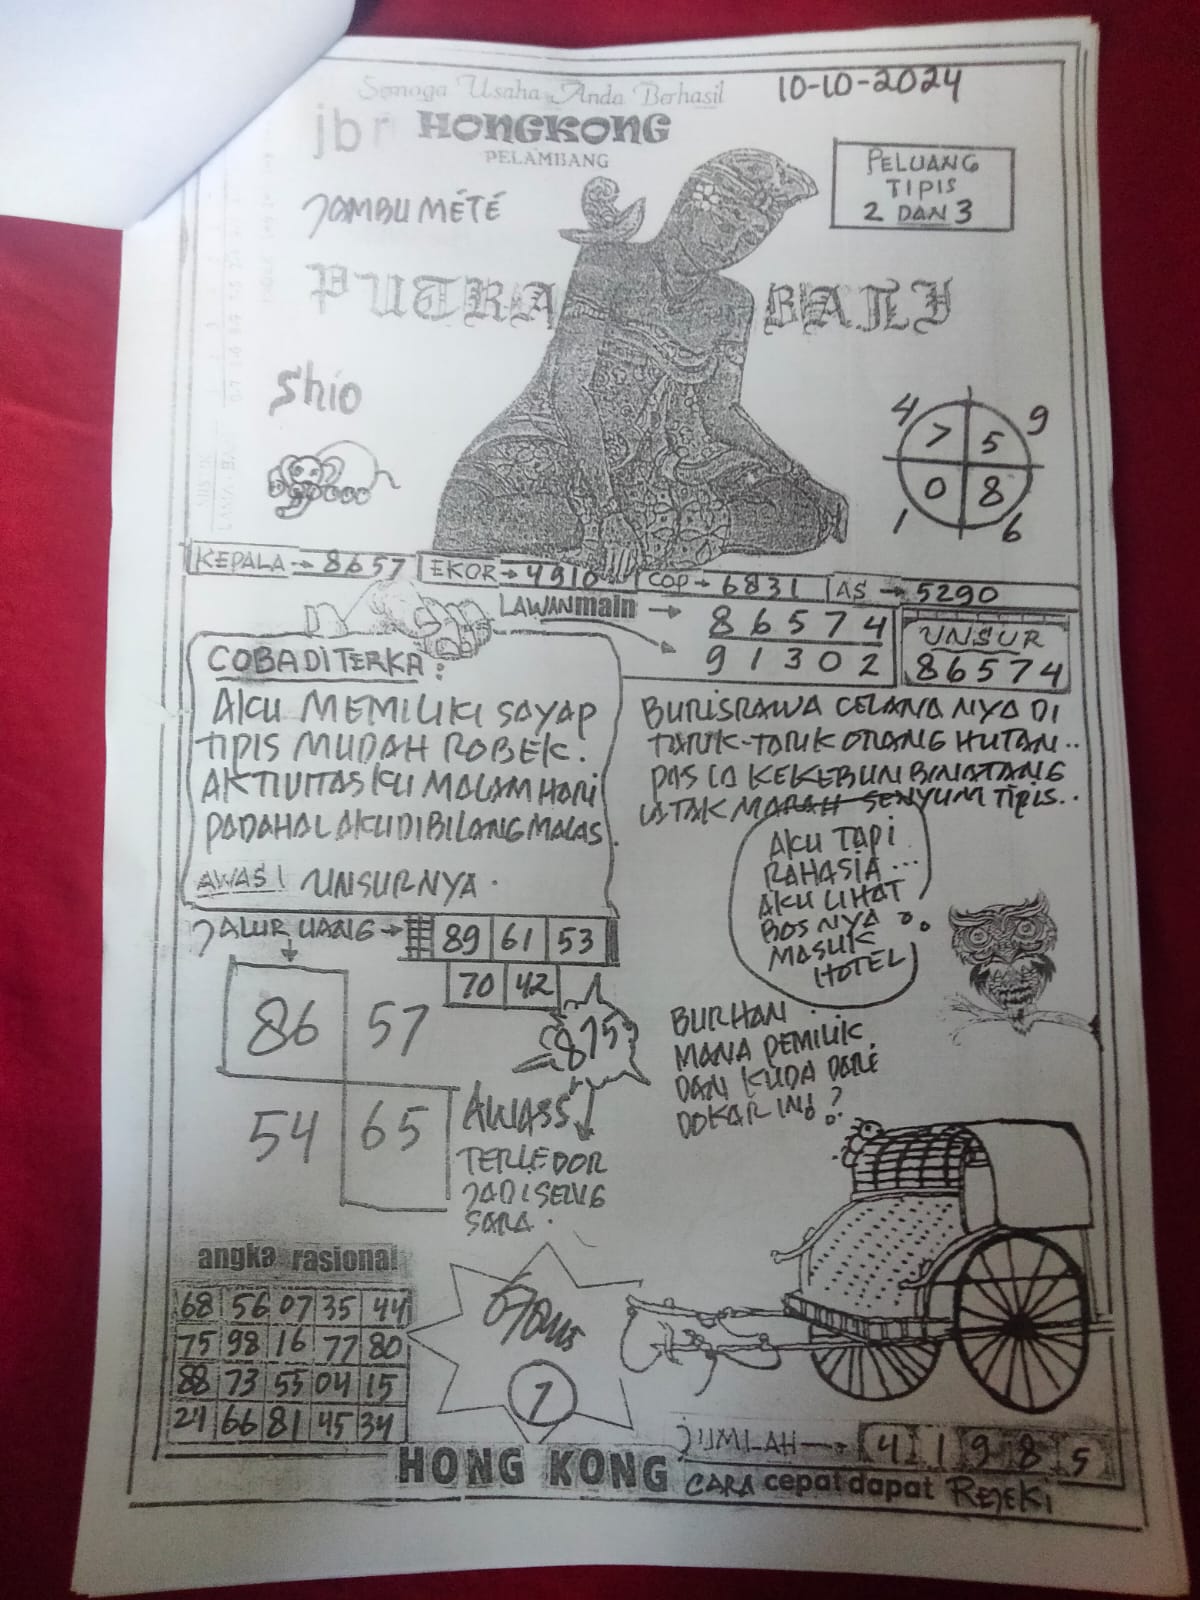 Semoga Usaha Anda Berhasil
10-10-2024
jbr HONGKONG
PELAMBANG
PELUANG
TIPIS
2 DAN 3
JAMBU METE
PUTRA BALI
Shio
4 9
7 5
0 8
1 6
KEPALA → 8657 EKOR → 4910 COP → 6831 AS → 5290
LAWAN main → 86574
91302
UNSUR
86574
COBA DITERKA:
AKU MEMILIKI SAYAP
TIPIS MUDAH ROBEK.
AKTIVITAS KU MALAM HARI
PADAHAL AKU DIBILANG MALAS.
AWAS! UNSURNYA.
BURISRAWA CELANA NYA DI
TARIK-TARIK ORANG HUTAN..
PAS IA KEKEBUN BINATANG
IA TAK MARAH SENYUM TIPIS..
AKU TAPI
RAHASIA...
AKU LIHAT
BOSNYA
MASUK
HOTEL
JALUR UANG → 89 61 53
70 42
86 57
54 65
875
AWASS
TERLEDOR
JADI SENG
SARA.
BURHAN
MANA PEMILIK
DAN KUDA DARI
DOKAR INI?
angka rasional
68 56 07 35 44
75 98 16 77 80
88 73 55 04 15
24 66 81 45 34
7
JUMLAH → 4 1 9 8 5
HONG KONG CARA cepat dapat REJEKI